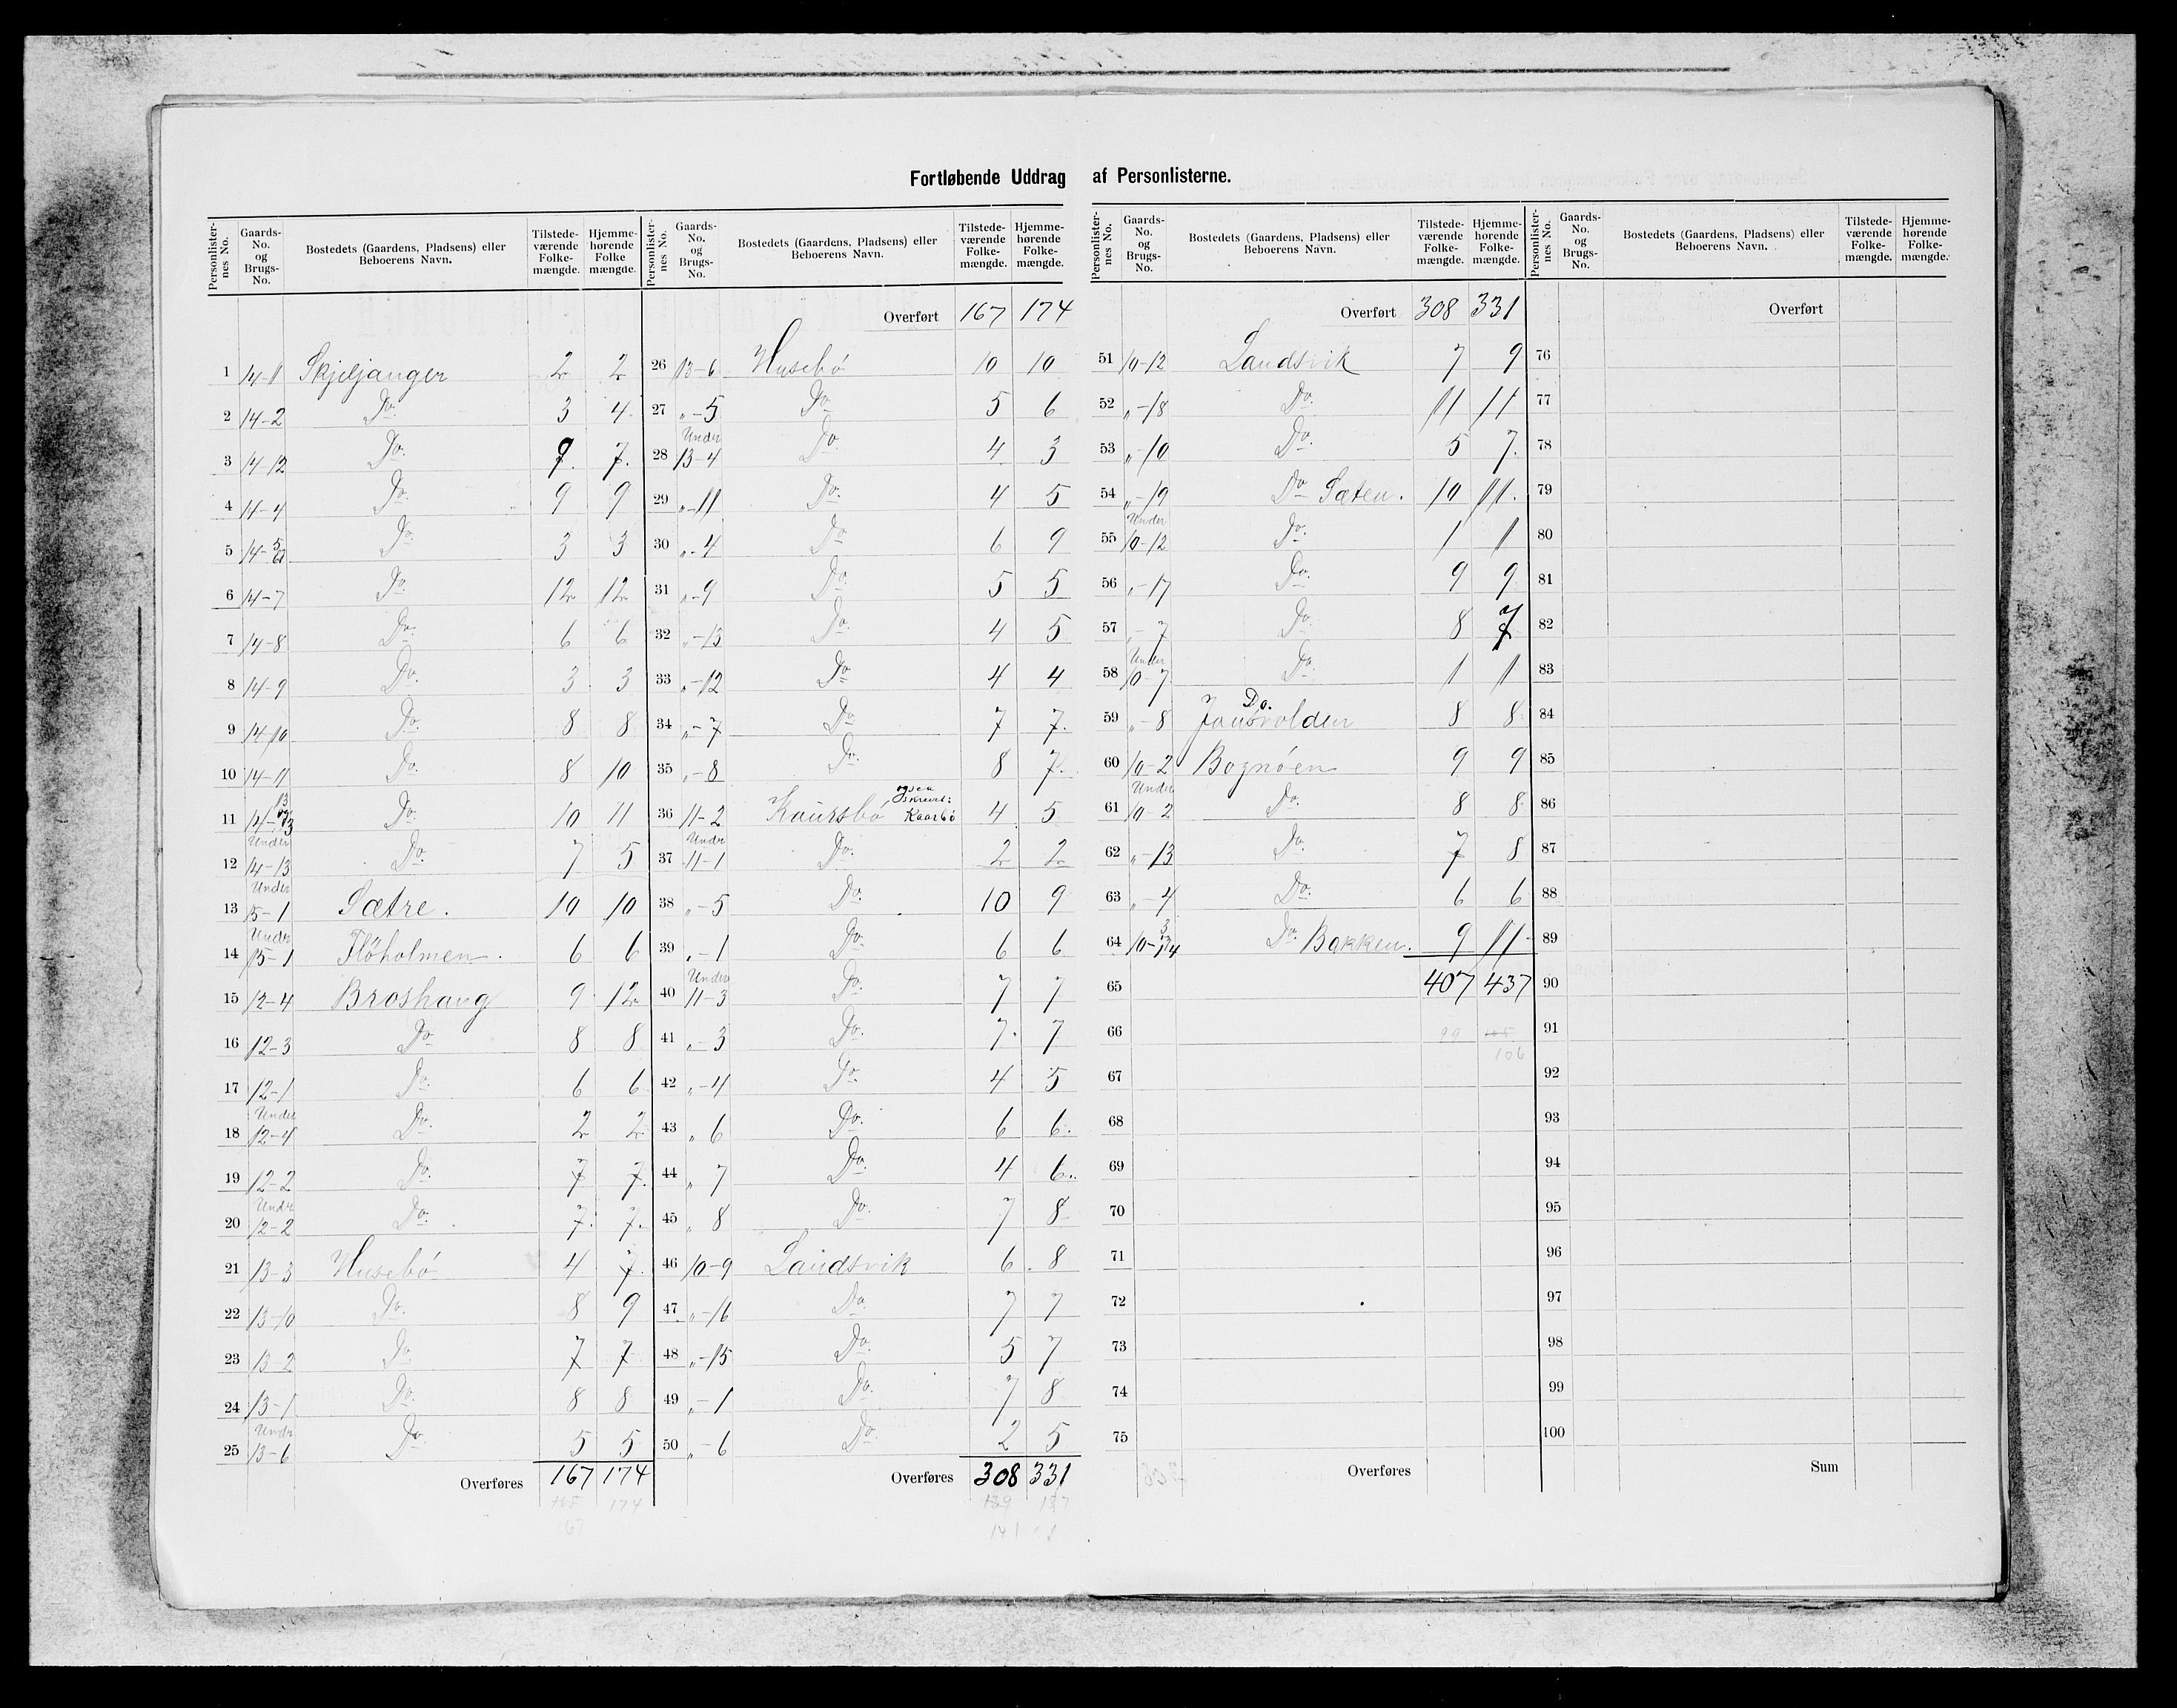 Fortløbende Uddrag af Personlisterne.
Personlister-nes No. Gaards-No. og Brugs-No. Bostedets (Gaardens, Pladsens) eller Beboerens Navn. Tilstede-værende Folke-mængde. Hjemme-hørende Folke mængde.
1 14-1 Skjeljanger 2 2
2 14-2 Do. 3 4
3 14-12 Do. 9. 7.
4 14-4 Do. 9 9
5 14-5 6 Do. 3 3
6 14-7 Do. 12 12
7 14-8 Do. 6 6
8 14-9 Do. 3 3
9 14-10 Do. 8 8
10 14-11 Do. 8 10
11 14-13 og 3 Do. 10 11
12 Under 14-13 Do. 7 5
13 Under 15-1 Sætre. 10 10
14 Under 15-1 Flöholmen. 6 6
15 12-4 Broshaug 9 12
16 12-3 Do. 8 8
17 12-1 Do. 6 6
18 Under 12-4 Do. 2 2
19 12-2 Do. 7 7.
20 Under 12-2 Do. 7. 7.
21 13-3 Husebö 4 7.
22 13-10 Do. 8 9
23 13-2 Do. 7 7
24 13-1 Do. 8 8
25 Under 13-6 Do. 5 5
Overføres 167 174
165 174
167
Personlister-nes No. Gaards-No. og Brugs-No. Bostedets (Gaardens, Pladsens) eller Beboerens Navn. Tilstede-værende Folke-mængde. Hjemme-hørende Folke-mængde.
Overført 167 174
26 13-6 Husebö 10 10
27 "-5 Do. 5 6
28 Under 13-4 Do. 4 3
29 "-11 Do. 4 5
30 "-4 Do. 6 9
31 "-9 Do. 5 5
32 "-13 Do. 4 5
33 "-12 Do. 4 4
34 "-7 Do. 7 7.
35 "-8 Do. 8 7.
36 11-2 Kaursbö ogsaa skrevet: Kaarbö 4 5
37 Under 11-1 Do. 2 2
38 "-5 Do. 10 9
39 "-1 Do. 6 6
40 Under 11-3 Do. 7 7
41 "-3 Do. 7. 7
42 "-4 Do. 4 5
43 " 6 Do. 6 6.
44 " 7 Do. 4 6.
45 " 8 Do. 7 8
46 10-9 Landsvik 6. 8
47 "-16 Do. 7 7
48 "-15 Do. 5 7
49 "-1 Do. 7 8
50 "-6 Do. 2 5
Overføres 308 331
139 157
141
Personlister-nes No. Gaards-No. og Brugs-No. Bostedets (Gaardens, Pladsens) eller Beboerens Navn. Tilstede-værende Folke-mængde. Hjemme-hørende Folke-mængde.
Overført 308 331
51 10-12 Landsvik 7 9
52 "-18 Do. 11 11
53 "-10 Do. 5 7.
54 "-19 Do. Sæten. 10 11.
55 Under 10-12 Do. 1 1
56 "-17 Do. 9 9
57 "-7 Do. 8 7
58 Under 10-7 Do. 1 1
59 "-8 Do. Jonsvolden 8 8
60 10-2 Bognöen 9 9
61 Under 10-2 Do. 8 8
62 "-13 Do. 7 8
63 "-4 Do. 6 6
64 10-3 14 Do. Bakken. 9 11
65 407 437
66 99 105
106
67
68
69
70
71
72
73
74
75
Overføres
Personlister-nes No. Gaards-No. og Brugs-No. Bostedets (Gaardens, Pladsens) eller Beboerens Navn. Tilstede-værende Folke-mængde. Hjemme-hørende Folke-mængde.
Overført
76
77
78
79
80
81
82
83
84
85
86
87
88
89
90
91
92
93
94
95
96
97
98
99
100
Sum